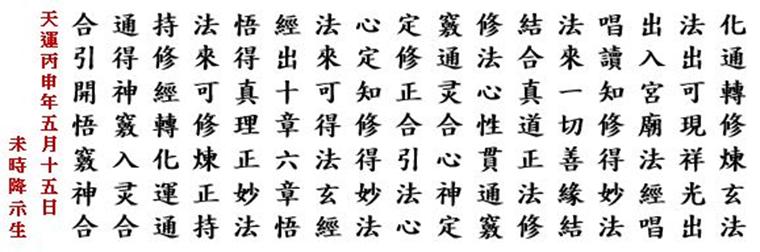 化通轉修煉玄法
法出可現祥光出
出入宮廟法經唱
唱讀知修得妙法
法來一切善緣結
結合真道正法修
修法心性貫通竅
竅通灵合心神定
定修正合引法心
心定知修得妙法
法來可得法玄經
經出十章六章悟
悟得真理正妙法
法來可修煉正持
持修經轉化運通
通得神竅入灵合
合引開悟竅神合
天運丙申年五月十五日
未時降示生